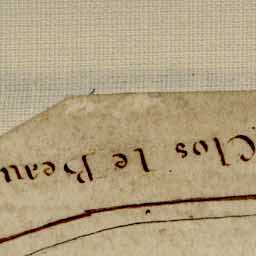 Clos le Beau